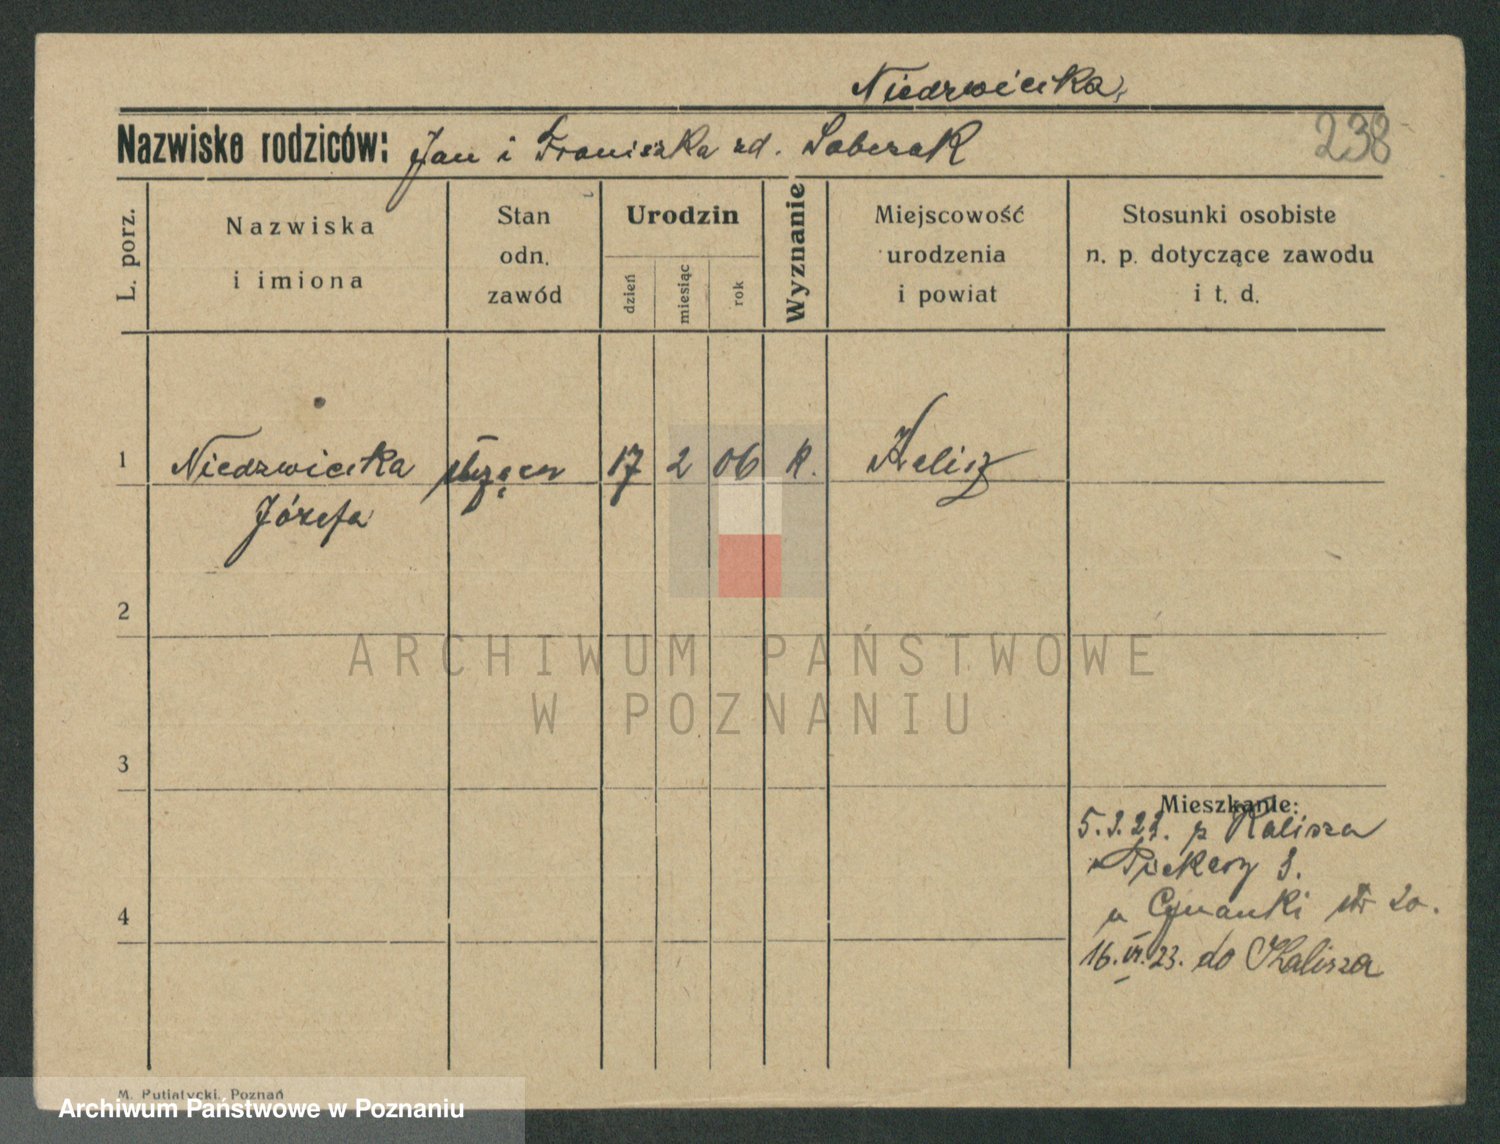 Niedzwiecka
Nazwisko rodziców: Jan i Franiszka zd. Sobczak
238
L. porz.
Nazwiska
i imiona
Stan
odn.
zawód
Urodzin
dzień
miesiąc
rok
Wyznanie
Miejscowość
urodzenia
i powiat
Stosunki osobiste
n. p. dotyczące zawodu
i t. d.
1 Niedzwiecka 17 2 06 k. Kalisz
Józefa
2
ARCHIWUM PAŃSTWOWE
W POZNANIU
3
Mieszkanie:
z Kalisza
Piekary
4
u Cymanki str 20.
16.VI.23. do Kalisza
M. Putiatycki, Poznań
Archiwum Państwowe w Poznaniu